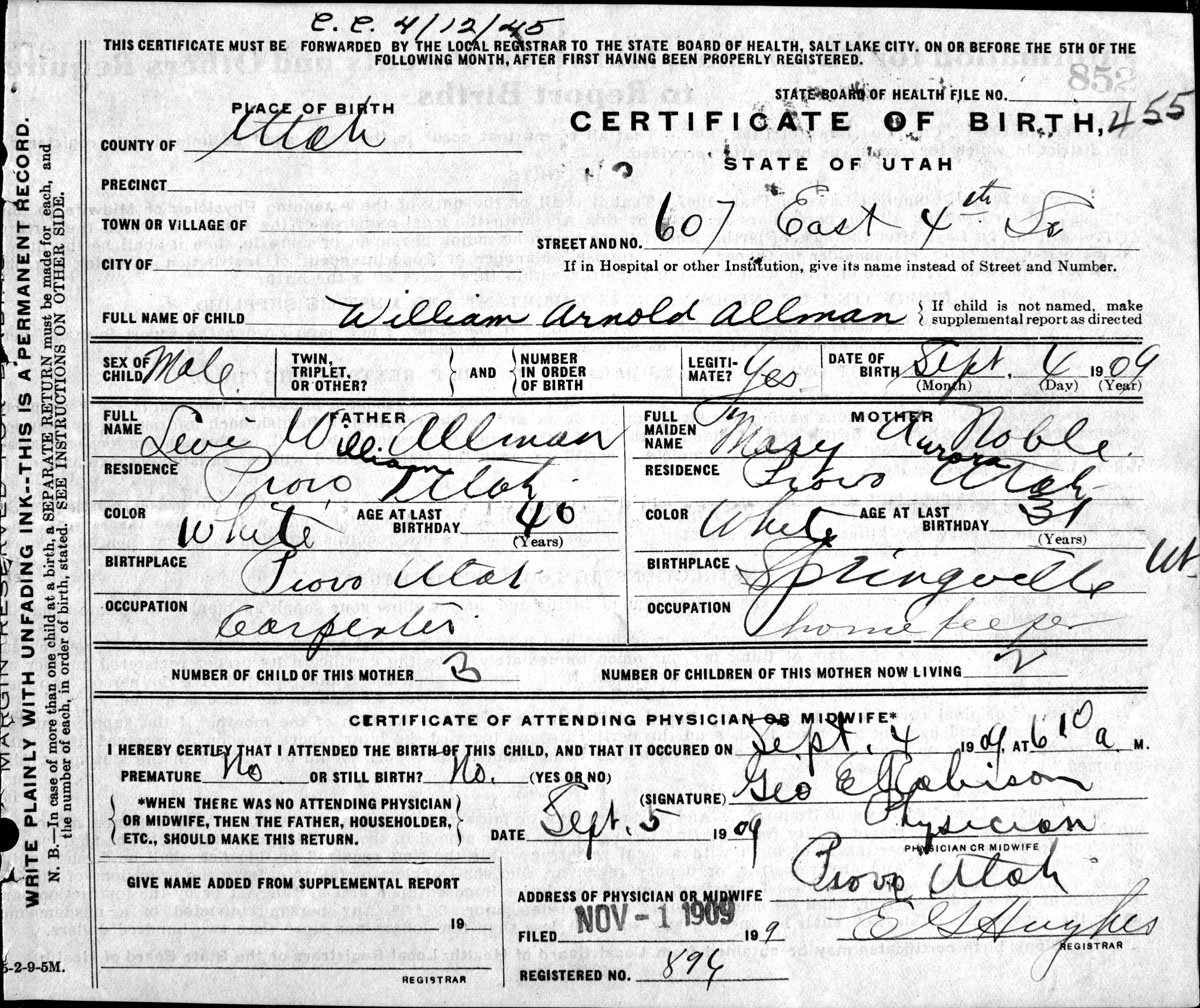 C.C. 4/12/45
THIS CERTIFICATE MUST BE FORWARDED BY THE LOCAL REGISTRAR TO THE STATE BOARD OF HEALTH, SALT LAKE CITY. ON OR BEFORE THE 5TH OF THE
FOLLOWING MONTH, AFTER FIRST HAVING BEEN PROPERLY REGISTERED.
852
PLACE OF BIRTH
STATE BOARD OF HEALTH FILE NO.
COUNTY OF Utah
CERTIFICATE OF BIRTH, 455
STATE OF UTAH
PRECINCT
TOWN OR VILLAGE OF
STREET AND NO. 607 East 4th So
CITY OF
If in Hospital or other Institution, give its name instead of Street and Number.
FULL NAME OF CHILD William Arnold Allman { If child is not named, make
supplemental report as directed
SEX OF CHILD Male. TWIN, TRIPLET, OR OTHER? } AND { NUMBER IN ORDER OF BIRTH LEGITI-MATE? Yes DATE OF BIRTH Sept. 4 1909
(Month) (Day) (Year)
FATHER
FULL NAME Levi Will Allman
William
RESIDENCE Provo Utah
COLOR White AGE AT LAST BIRTHDAY 40
(Years)
BIRTHPLACE Provo Utah
OCCUPATION Carpenter
MOTHER
FULL MAIDEN NAME Mary Noble
Aurora
RESIDENCE Provo Utah
COLOR White AGE AT LAST BIRTHDAY 31
(Years)
BIRTHPLACE Springville Ut.
OCCUPATION homekeeper
NUMBER OF CHILD OF THIS MOTHER 3 NUMBER OF CHILDREN OF THIS MOTHER NOW LIVING 2
CERTIFICATE OF ATTENDING PHYSICIAN OR MIDWIFE*
I HEREBY CERTLEY THAT I ATTENDED THE BIRTH OF THIS CHILD, AND THAT IT OCCURED ON Sept. 4 1909, AT 6 10 a M.
PREMATURE No OR STILL BIRTH? No. (YES OR NO)
(SIGNATURE) Geo E Robison
{ *WHEN THERE WAS NO ATTENDING PHYSICIAN
OR MIDWIFE, THEN THE FATHER, HOUSEHOLDER,
ETC., SHOULD MAKE THIS RETURN. }
DATE Sept. 5 1909 Physician
PHYSICIAN OR MIDWIFE
GIVE NAME ADDED FROM SUPPLEMENTAL REPORT
19
REGISTRAR
ADDRESS OF PHYSICIAN OR MIDWIFE Provo Utah
FILED NOV - 1 1909 199 E G Hughes
REGISTRAR
REGISTERED NO. 896
5-2-9-5M.
MARGIN RESERVED
WRITE PLAINLY WITH UNFADING INK--THIS IS A PERMANENT RECORD.
N. B.—In case of more than one child at a birth, a SEPARATE RETURN must be made for each, and
the number of each, in order of birth, stated. SEE INSTRUCTIONS ON OTHER SIDE.